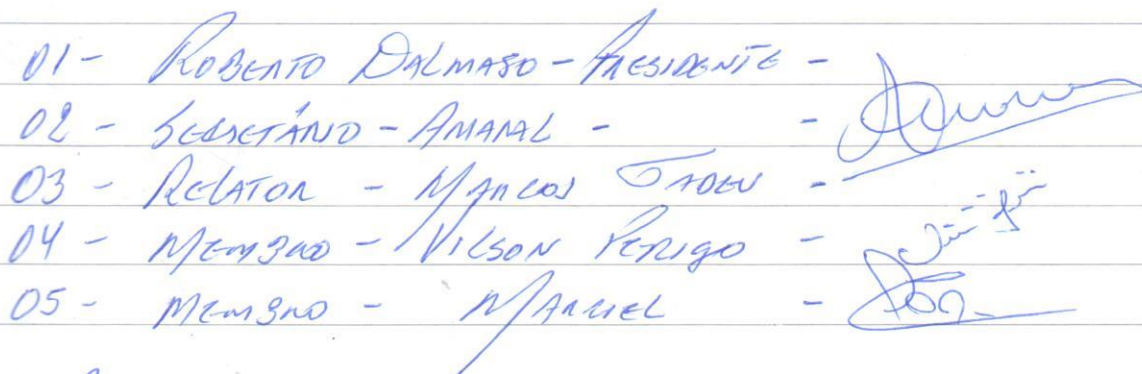 01 - ROBERTO DALMASO - PRESIDENTE -
02 - SECRETÁRIO - AMARAL - -
03 - RELATOR - MARCOS TADEU -
04 - MEMBRO - VILSON PERIGO -
05 - MEMBRO - MARCIEL -